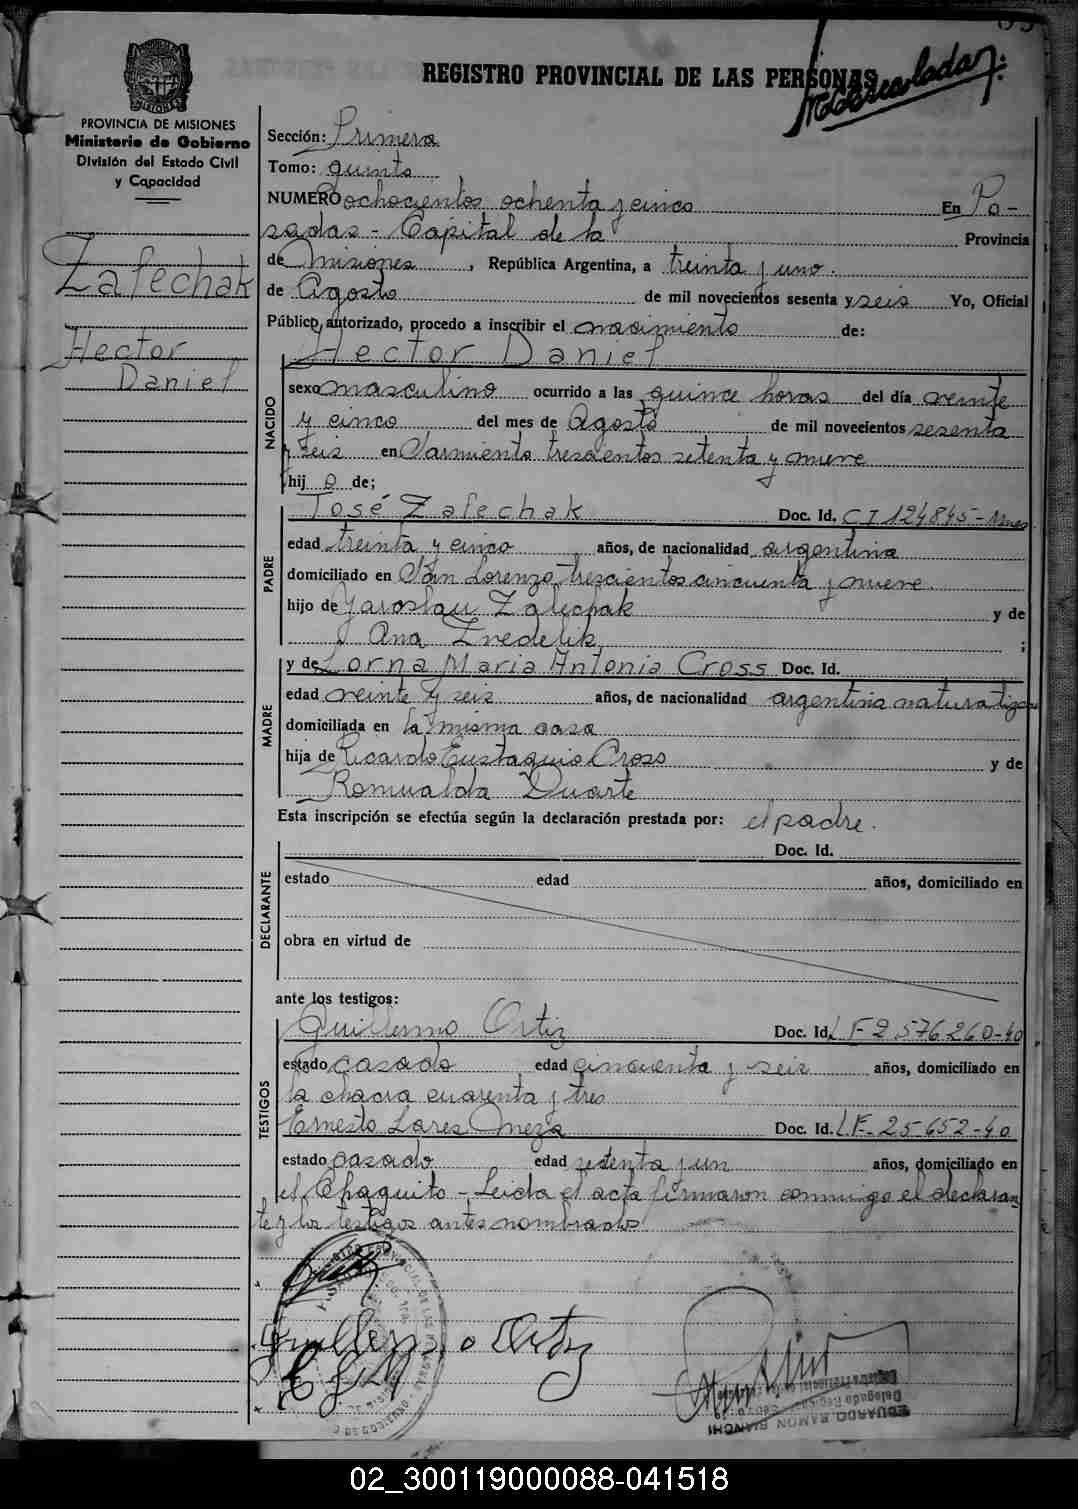 REGISTRO PROVINCIAL DE LAS PERSONAS
PROVINCIA DE MISIONES
Ministerio de Gobierno
División del Estado Civil
y Capacidad
Zalechak
Hector
Daniel
Sección: Primera
Tomo: quinto
NUMERO ochocientos ochenta y cinco En Po-
sadas - Capital de la Provincia
de Misiones, República Argentina, a treinta y uno.
de Agosto de mil novecientos sesenta y seis Yo, Oficial
Público autorizado, procedo a inscribir el nacimiento de:
Hector Daniel
NACIDO
sexo masculino ocurrido a las quince horas del día veinte
y cinco del mes de Agosto de mil novecientos sesenta
y seis en Sarmiento trescientos setenta y nueve
hij o de;
PADRE
José Zalechak Doc. Id. CI 124845-Mnes
edad treinta y cinco años, de nacionalidad argentina
domiciliado en San Lorenzo trescientos cincuenta y nueve
hijo de Yaroslau Zalechak y de
Ana ;
MADRE
y de Lorna Maria Antonia Cross Doc. Id.
edad veinte y seis años, de nacionalidad argentina
domiciliada en la misma casa
hija de Ricardo Eustaquio Cross y de
Romualda Duarte
Esta inscripción se efectúa según la declaración prestada por: el padre.
DECLARANTE
Doc. Id.
estado edad años, domiciliado en
obra en virtud de
ante los testigos:
TESTIGOS
Guillermo Ortiz Doc. Id. 2.576.260-40
estado casado edad cincuenta y seis años, domiciliado en
la chacra cuarenta y tres
Ernesto Lares Meza Doc. Id. 25-652-40
estado casado edad setenta y un años, domiciliado en
el Chaquito - Leida el acta firmaron conmigo el declaran
te y los testigos antes nombrados
Guillermo Ortiz
EDUARDO RAMON BIANCHI
02_300119000088-041518